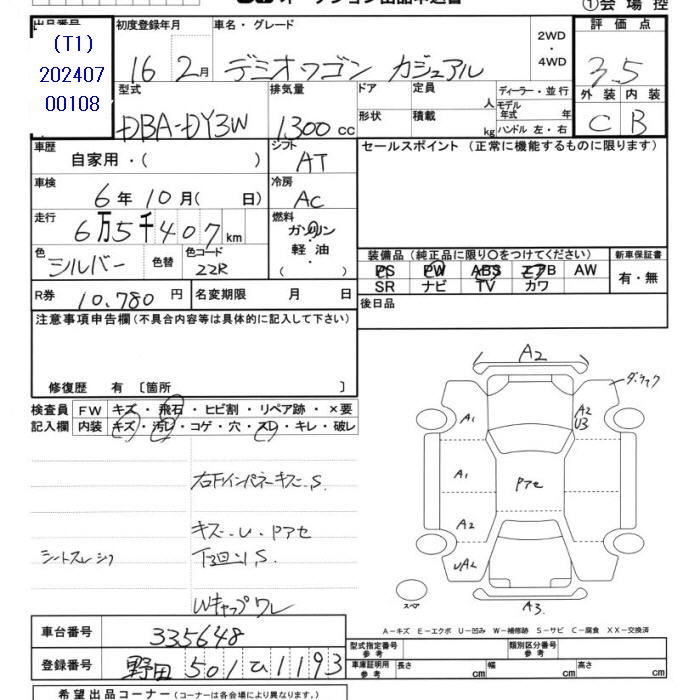 ①会場控
初度登録年月 車名・グレード 2WD ・ 4WD 評価点
(T1) 202407 00108
16 2月 デミオワゴン カジュアル 3.5
型式 排気量 ドア 定員 人 ディーラー・並行 外装 内装
DBA-DY3W 1300cc 形状 積載 kg モデル年式 年 ハンドル 左・右 C B
車歴 自家用・( ) シフト AT セールスポイント(正常に機能するものに限ります)
車検 6年10月( 日) 冷房 AC
走行 6万5千407km 燃料 ガソリン・軽油・( )
色 シルバー 色替 色コード 22R
装備品(純正品に限り○をつけてください) 新車保証書
PS PW ABS エアB AW 有・無
SR ナビ TV カワ
R券 10,780円 名変期限 月 日 後日品
注意事項申告欄(不具合内容等は具体的に記入して下さい)
修復歴 有 〔箇所 〕
検査員 FW キズ・飛石・ヒビ割・リペア跡・×要
記入欄 内装 キズ・汚レ・コゲ・穴・スレ・キレ・破レ
A2
A1
A2
U3
A1
Pアセ
A2
UA2
スペア
A3
右Fインパネキズ.S.
キズ・U・Pアセ
シートスレシワ
下回リS.
Wキャップワレ
A-キズ E-エクボ U-凹み W-補修跡 S-サビ C-腐食 XX-交換済
車台番号 335648
型式指定番号 参考 類別区分番号 参考
登録番号 野田 501 ひ 1193
車庫証明用 参考 長さ cm 幅 cm 高さ cm
希望出品コーナー(コーナーは各会場により異なります。)